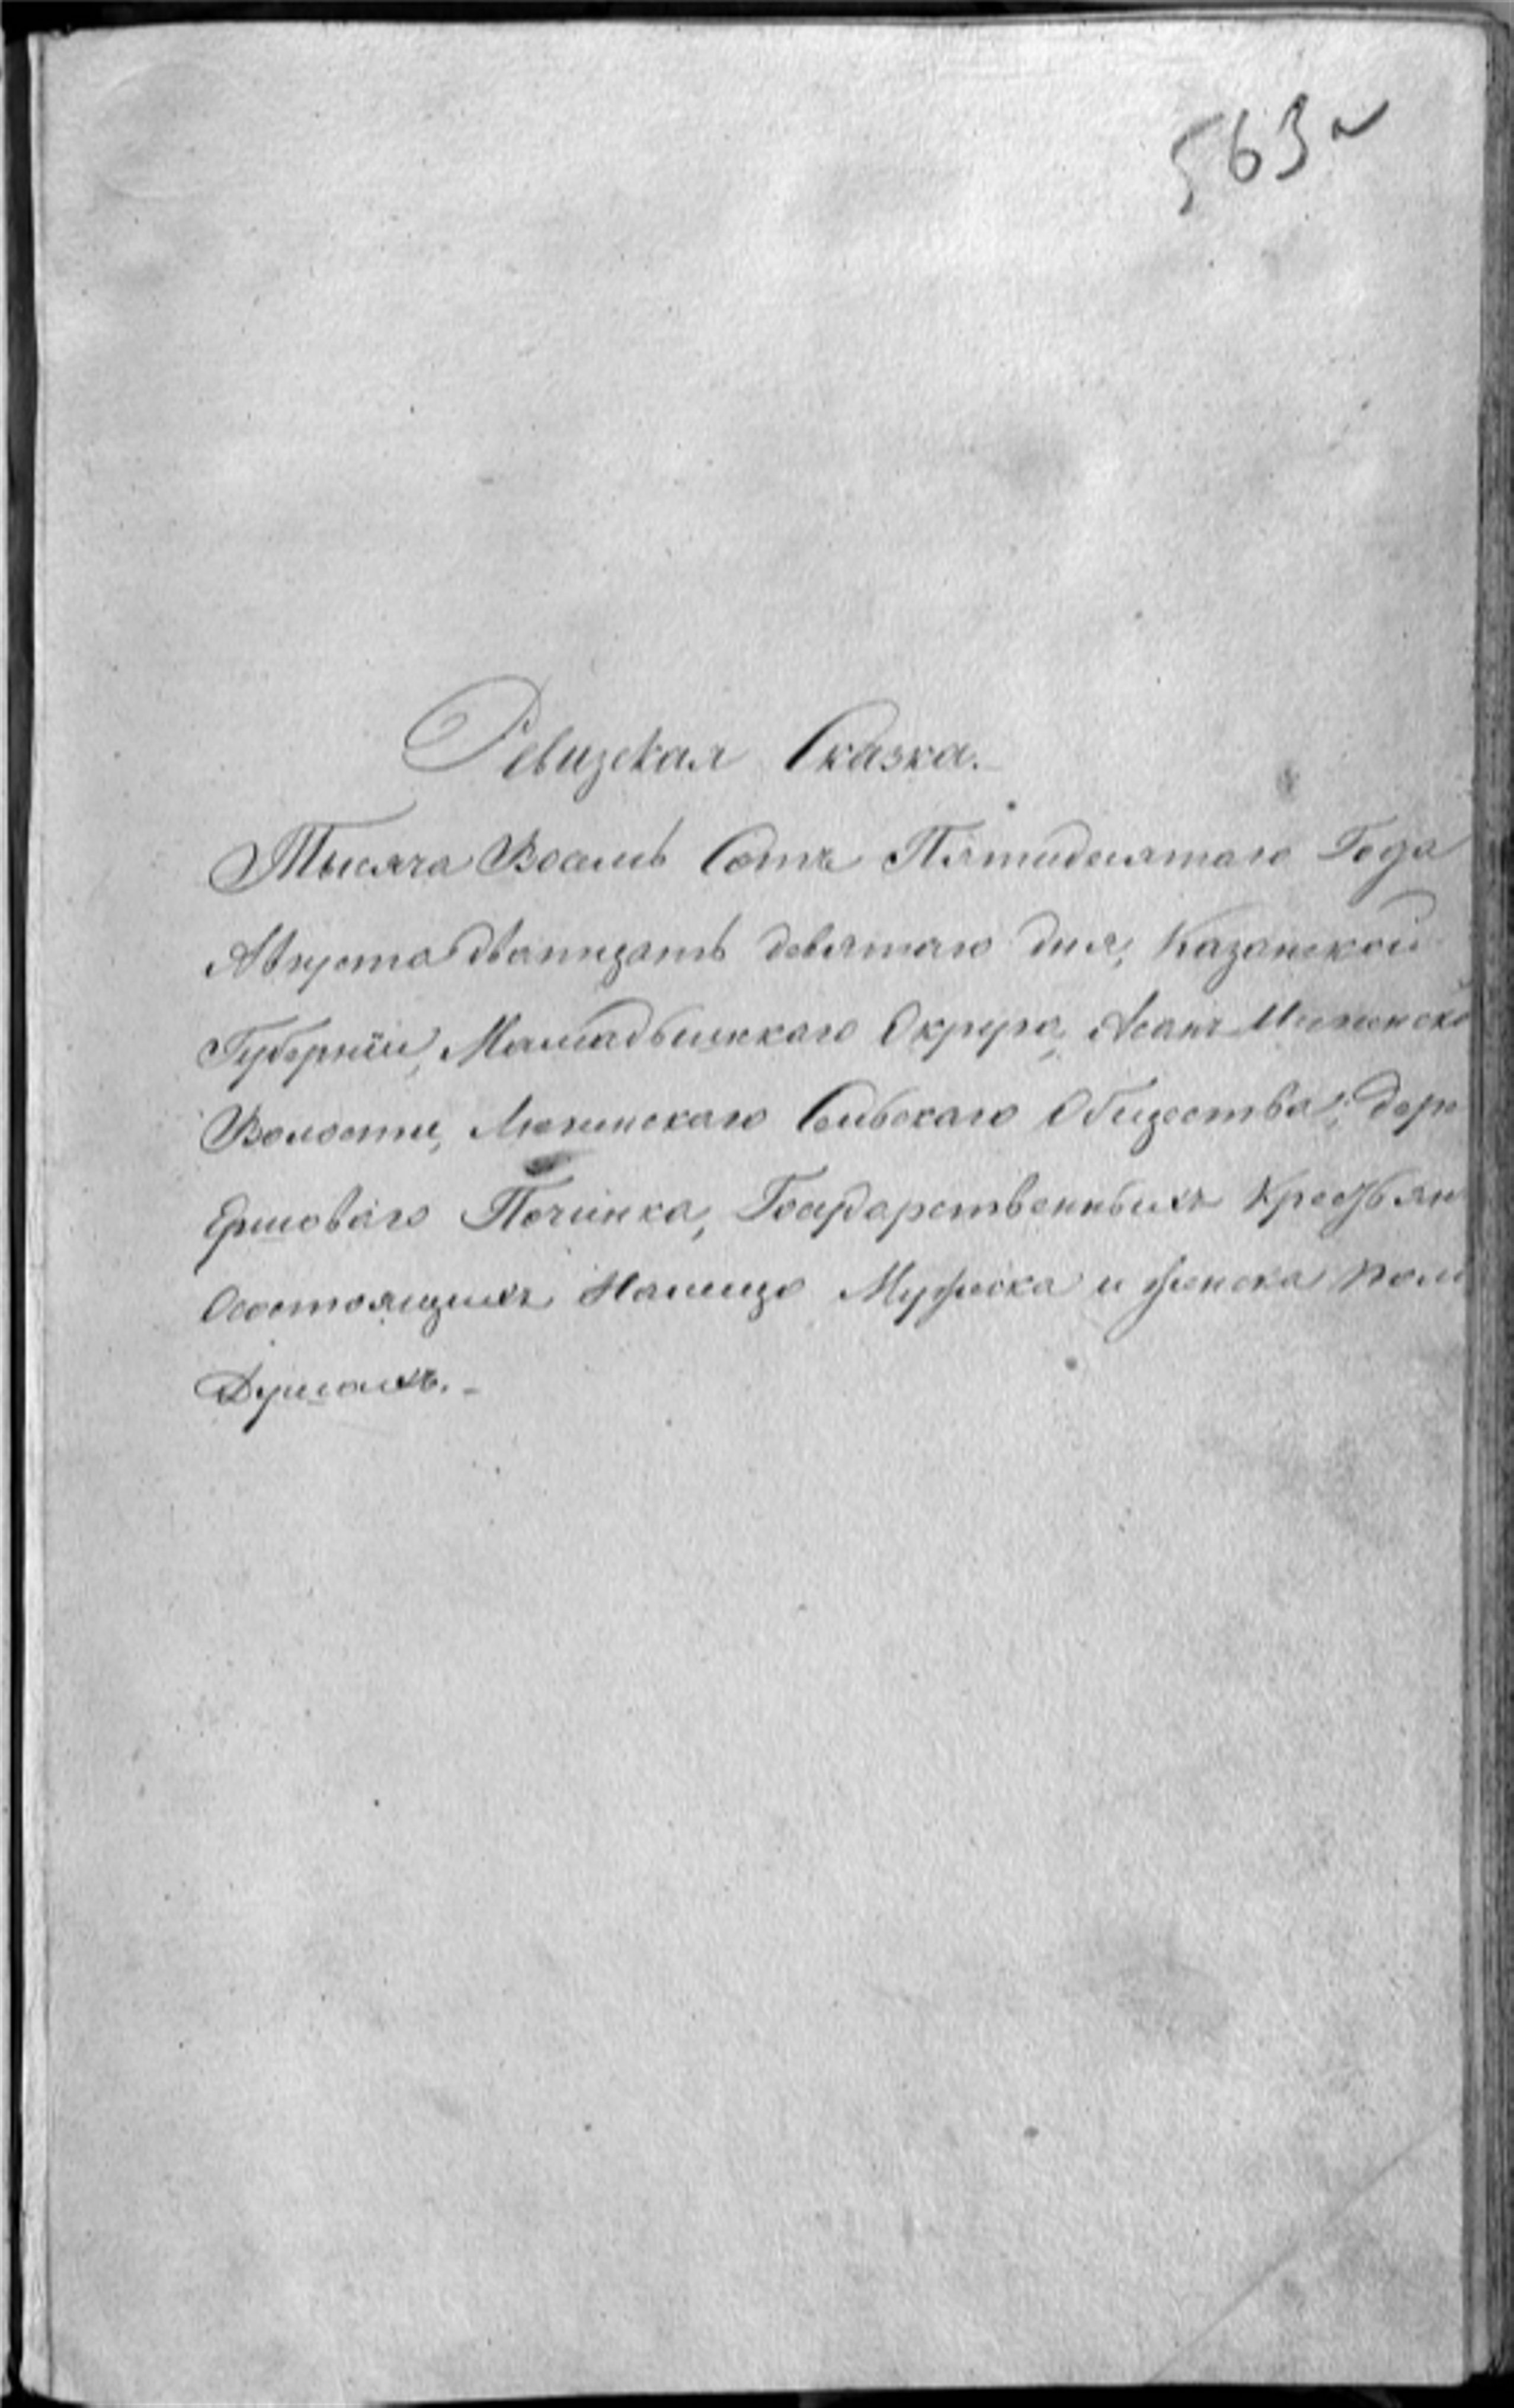 563
Ревизская Сказка.
Тысяча Восемь Сотъ Пятидесятаго Года
Августа дватцать девятаго дня, Казанской
Губерніи, Мамадышскаго Округа,
Волости, Сельскаго Общества, дере
Ершоваго Починка, Государственныхъ Крестьян
Состоящихъ Налицо Мужеска и женска пола
Душахъ.